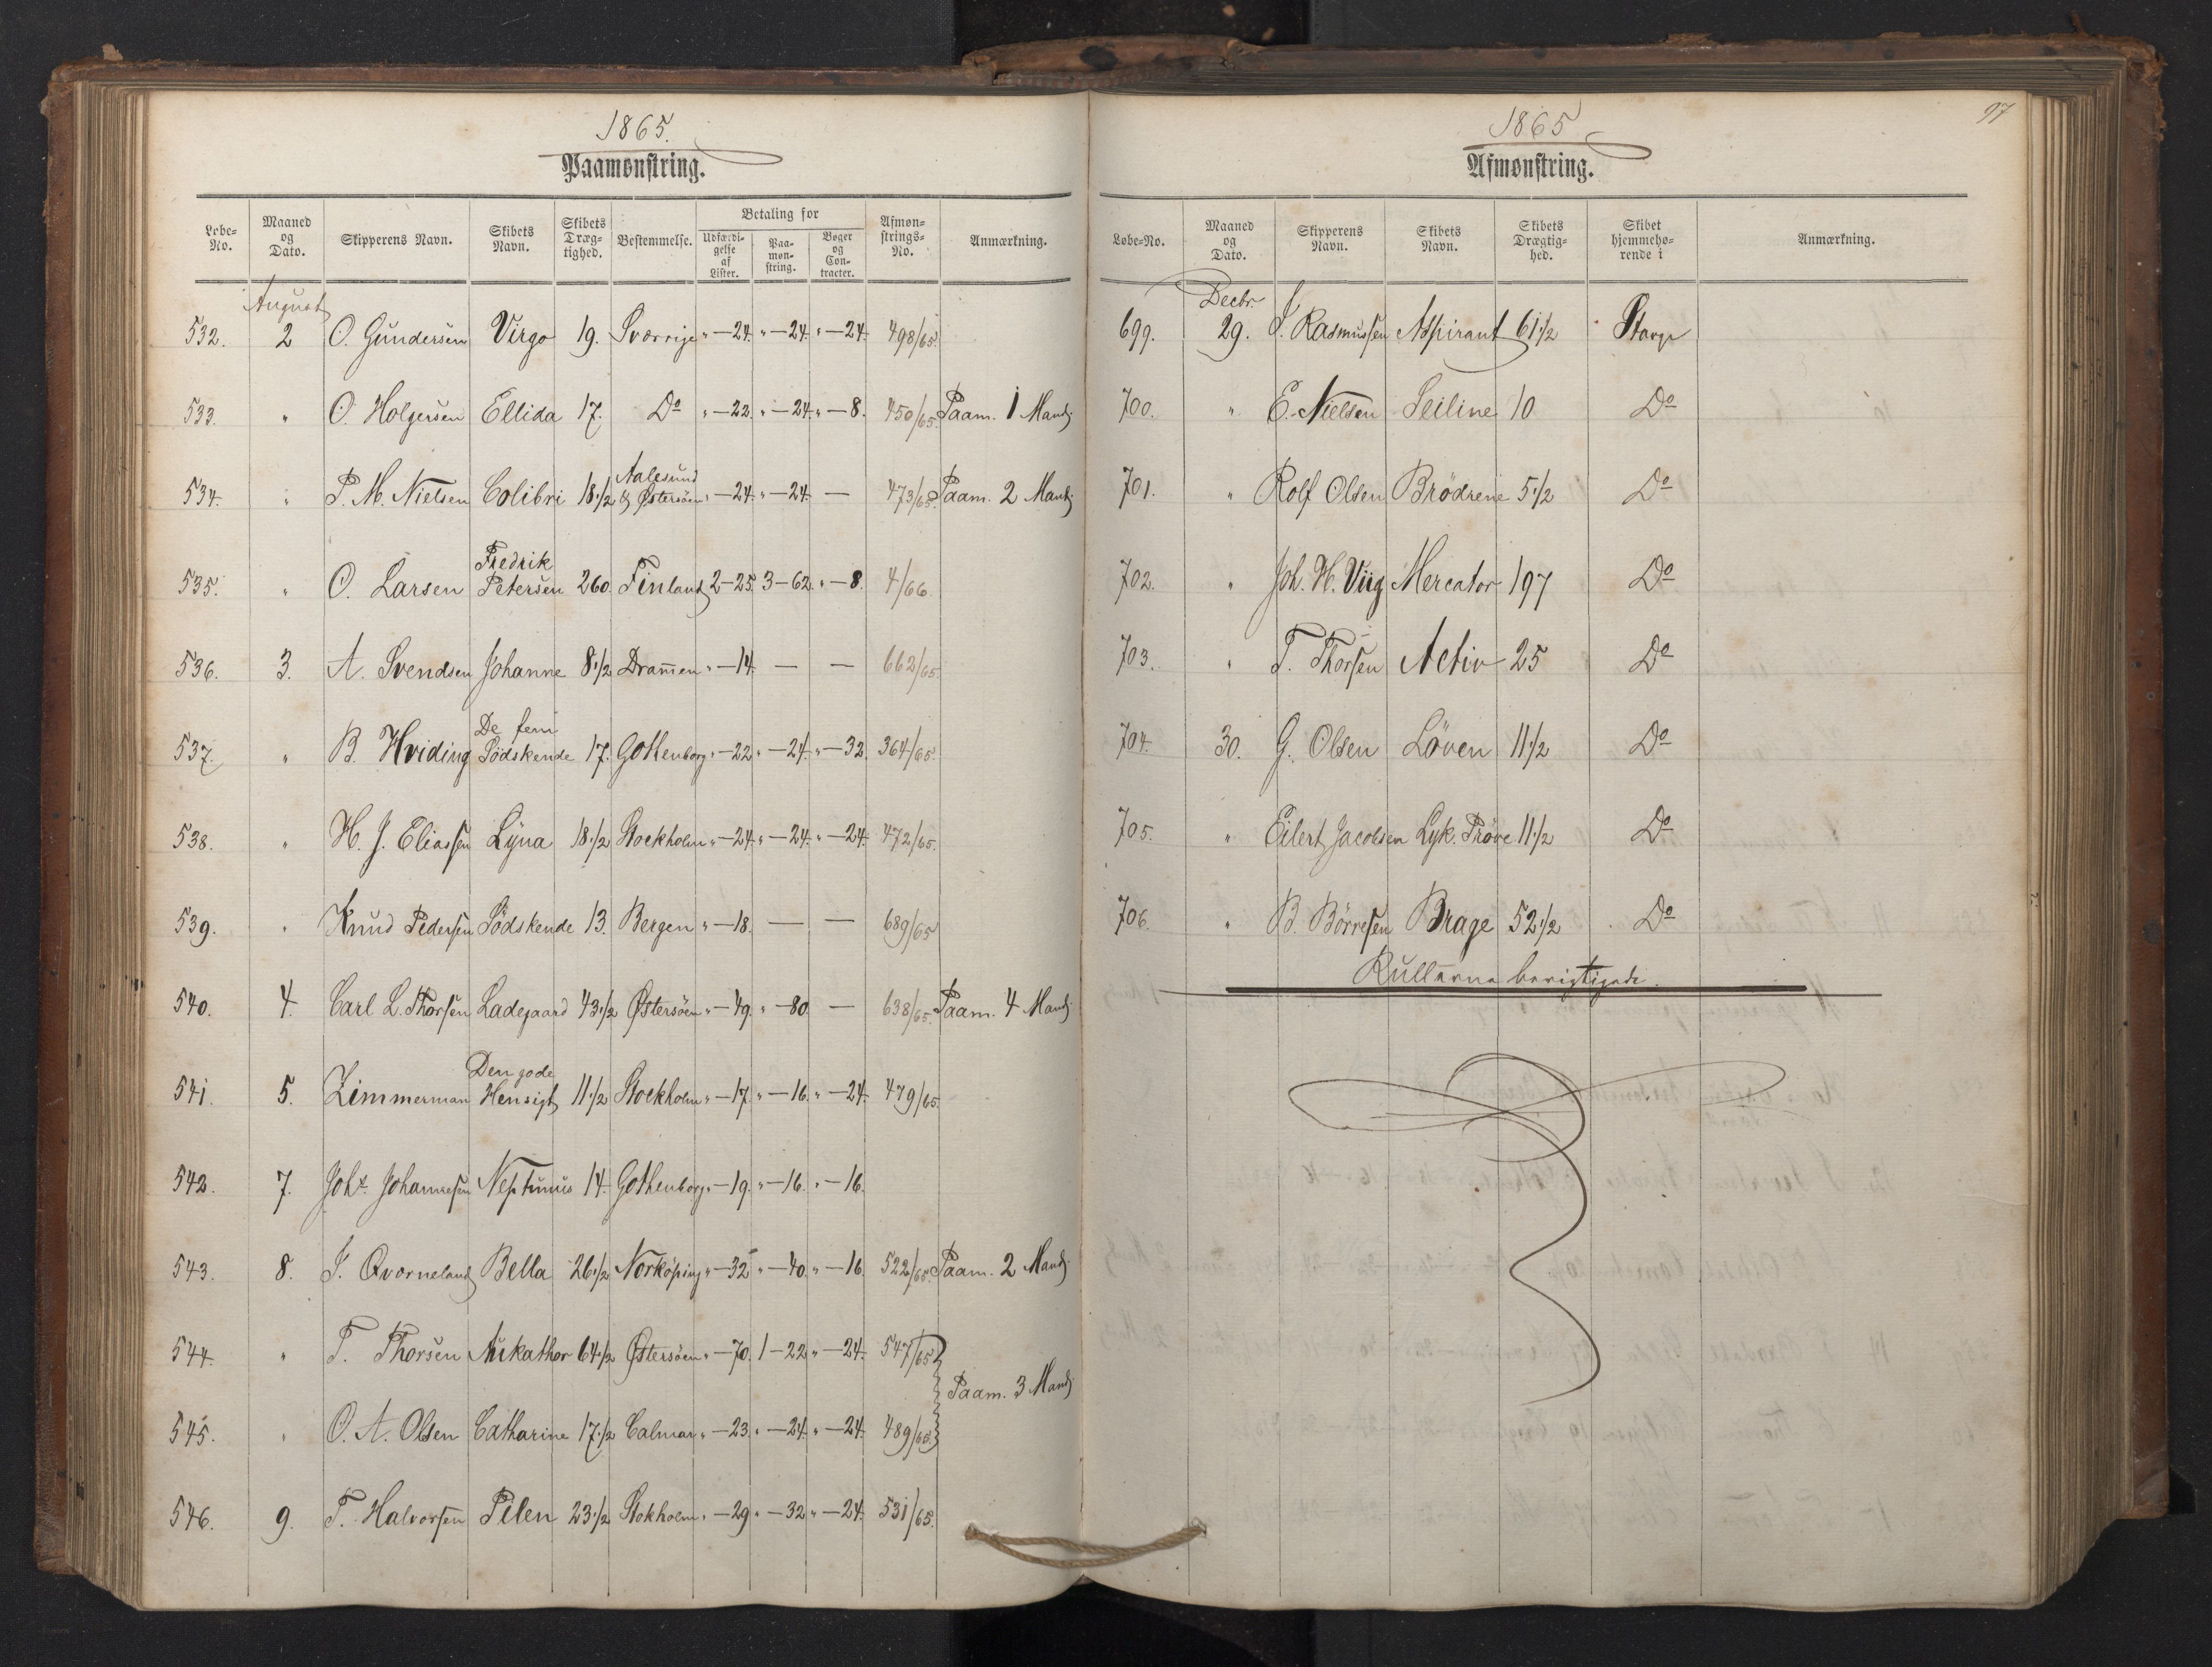 1865.
Paamønstring.
Løbe-No. Maaned og Dato. Skipperens Navn. Skibets Navn. Skibets Dræg-tighed. Bestemmelse. Betaling for Udfærdi-gelse af Lister. Paa-møn-string. Bøger og Con-tracter. Afmøn-strings-No. Anmærkning.
August
532. 2 O. Gundersen Virgo 19. Sverrige " — 24. " — 24. " — 24. 498/65.
533. " O. Holgersen Ellida 17. Do " — 22. " — 24. " — 8. 450/65. Paam. 1 Mand
534. " P. M. Nielsen Colibri 18 1/2 Aalesund & Østersöen " — 24. " — 24. — 473/65. Paam. 2 Mand
535. " O. Larsen Fredrik Petersen 260. Finland 2—25. 3—62. " — 8. 4/66
536. 3. A. Svendsen Johanne 8 1/2 Dramen " — 14. — — 662/65.
537. " B. Hviding De fem Södskende 17. Gothenborg " — 22 " — 24. " — 32. 364/65.
538. " H. J. Eliassen Lyna 18 1/2 Stockholm " — 24. " — 24. " — 24. 472/65.
539. " Knud Pedersen Södskende 13. Bergen " — 18. — — 689/65
540. 4. Carl L. Thorsen Ladegaard 43 1/2 Østersöen " — 49. " — 80. — 638/65. Paam. 4 Mand
541. 5. Zimmerman Den gode Hensigt 11 1/2 Stockholm " — 17. " — 16. " — 24. 479/65.
542. 7. Johs. Johannesen Neptunus 14. Gothenborg " — 19. " — 16. " — 16.
543. 8. J. Qvorneland Bella 26 1/2 Norköping " — 32 " — 40. " — 16. 522/65. Paam. 2 Mand
544. " T. Thorsen Aukathor 64 1/2 Østersöen " — 70. 1 — 22 " — 24. 547/65
Paam. 3 Mand
545. " O. A. Olsen Catharine 17 1/2 Calmar " — 23. " — 24. " — 24. 489/65.
546. 9. T. Halvorsen Pilen 23 1/2 Stokholm " — 29 " — 32 " — 24. 531/65.
97
1865
Afmønstring.
Løbe-No. Maaned og Dato. Skipperens Navn. Skibets Navn. Skibets Drægtig-hed. Skibet hjemmehø-rende i Anmærkning.
Decbr.
699. 29. J. Rasmussen Aspirant 61 1/2 Stavgr
700. " E. Nielsen Seiline 10 Do
701. " Rolf Olsen Brödrene 5 1/2 Do
702. " Joh. H. Virg Mercator 197 Do
703. " T. Thorsen Activ 25 Do
704. 30. G. Olsen Löven 11 1/2 Do
705. " Eilert Jacobsen Lyk. Pröve 11 1/2 Do
706. " B. Börresen Brage 52 1/2 Do
Rullerne berigtigede.